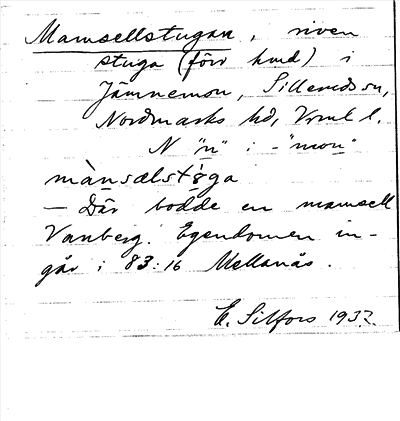 Mamsellstugan, riven
stuga (förv hmd) i
Jämnemon, Silleruds sn,
Nordmarks hd, Vrml l.
N "n" i -"mon"
mànsælstɷga
— Där bodde en mamsell
Vanberg. Egendomen in-
går i 83:16 Mellanås.
E. Silfors 1932.